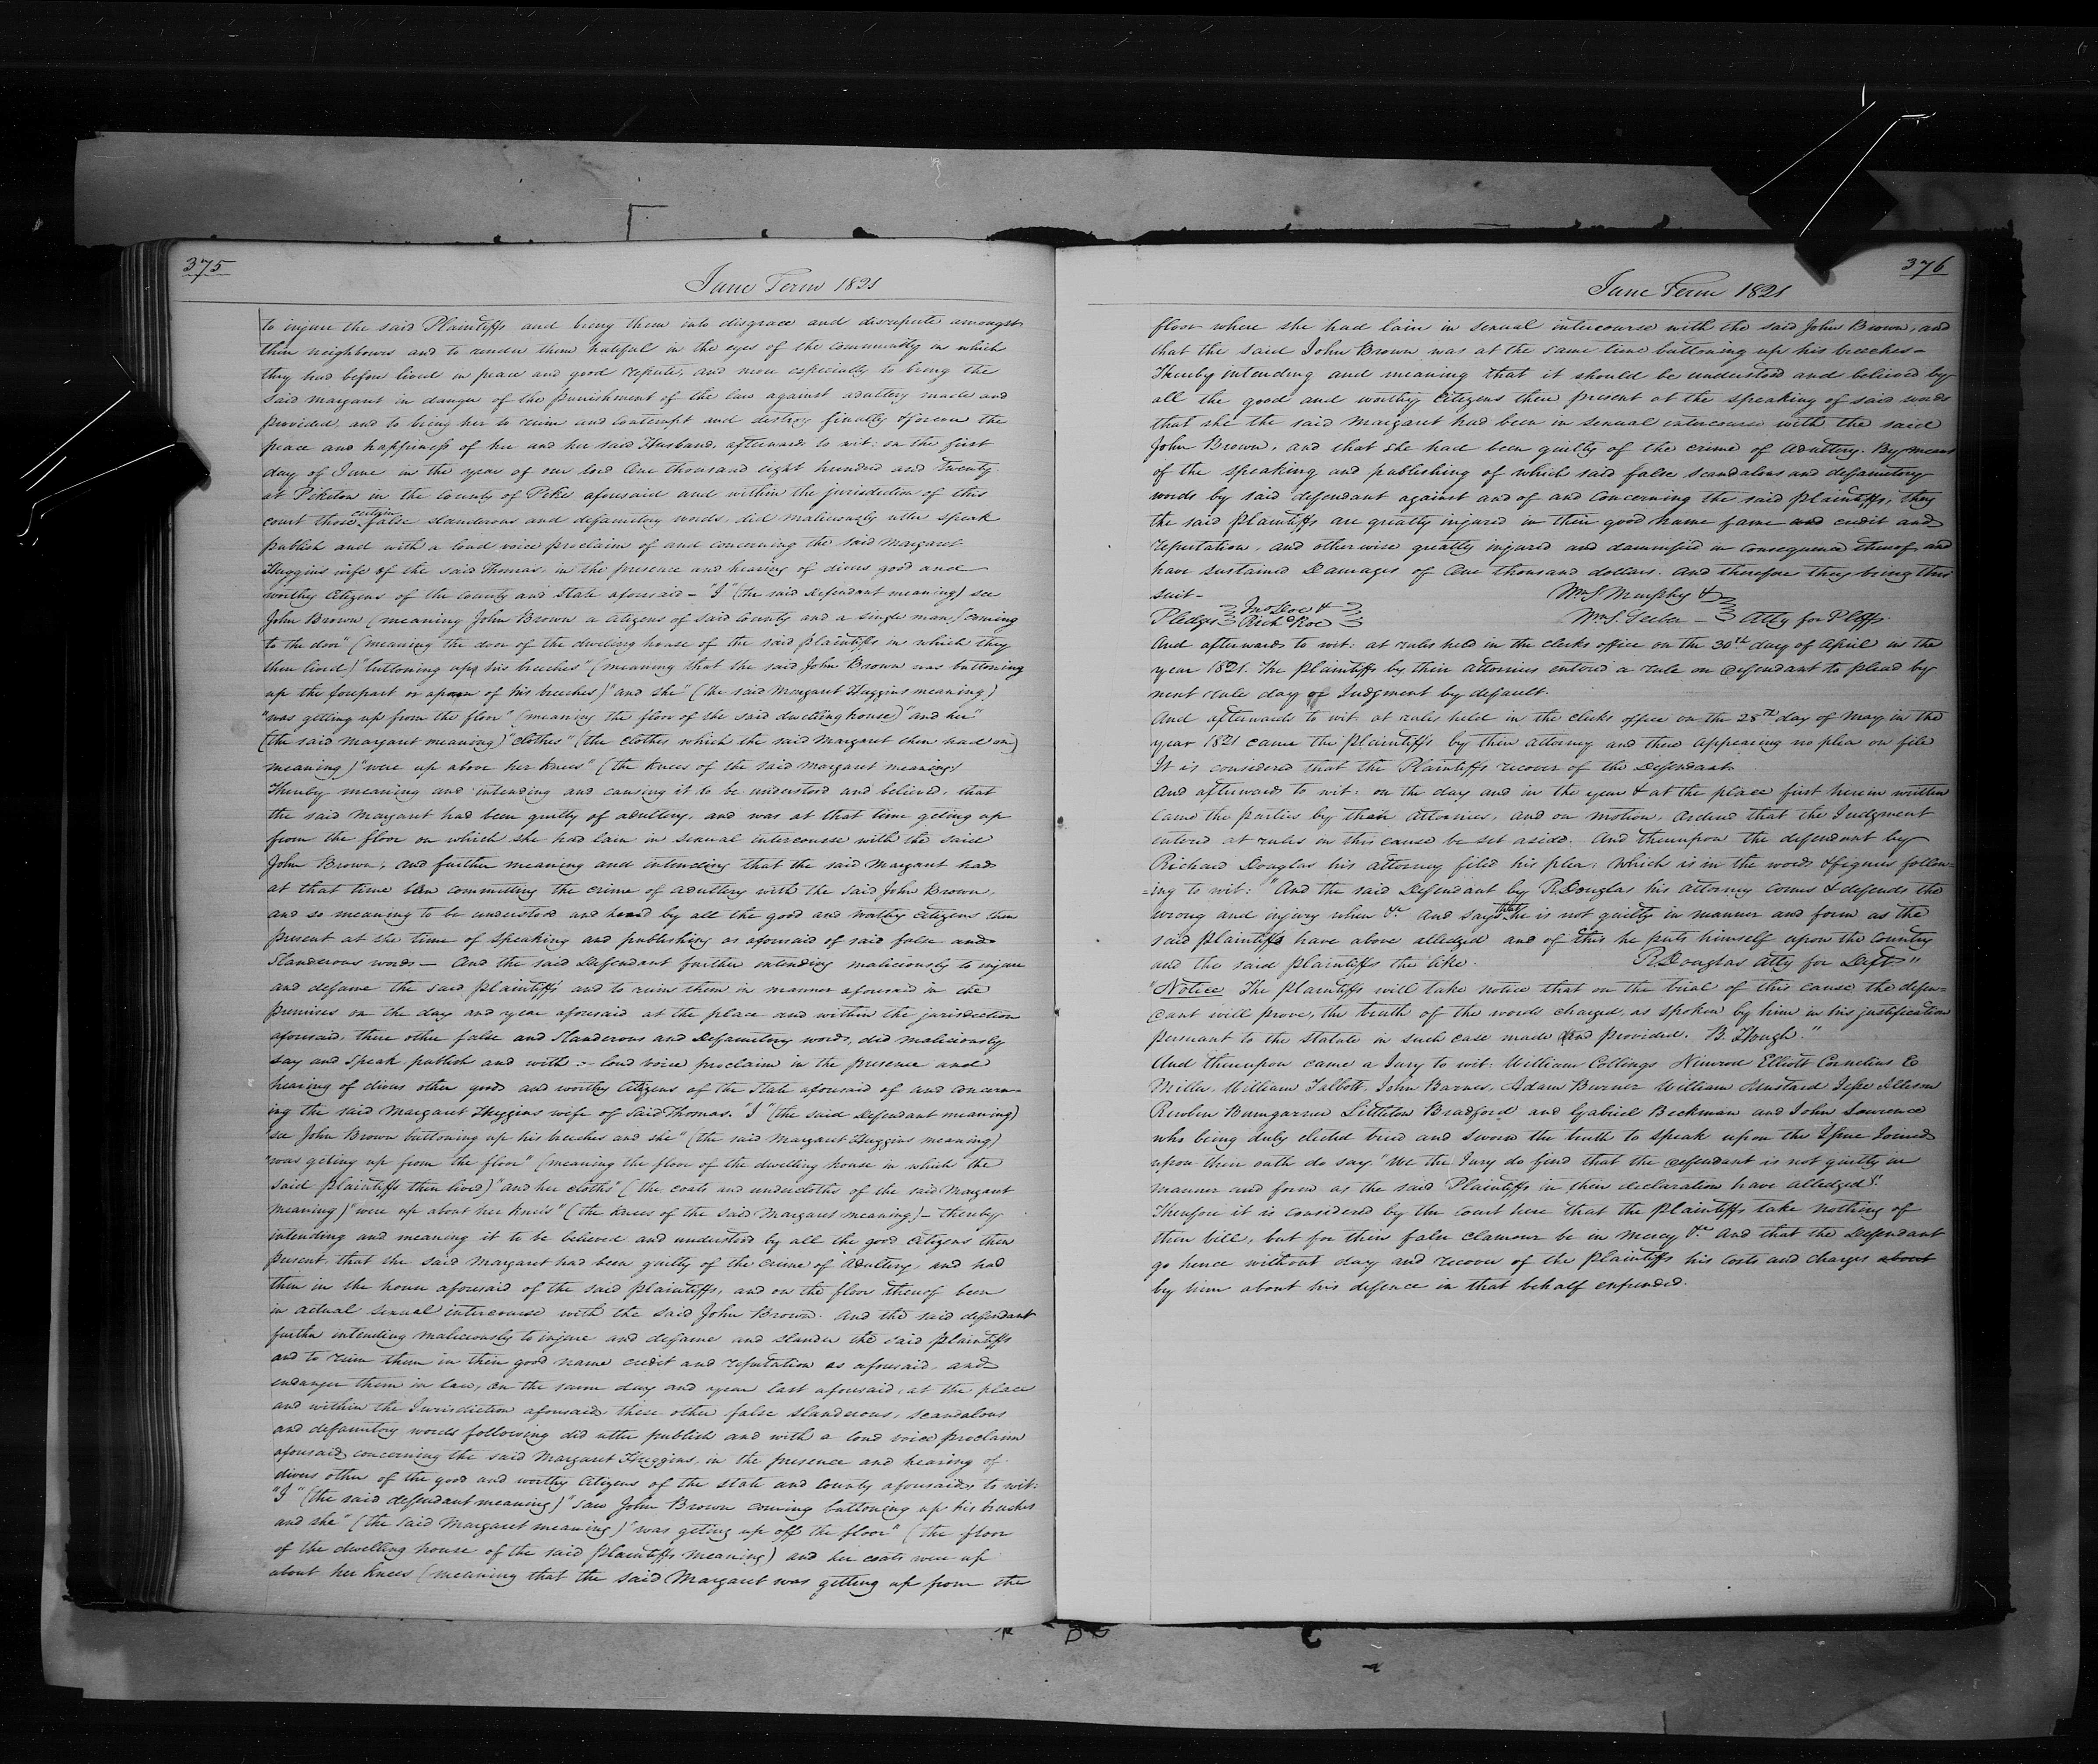 375
June Term 1821
to injure the said Plaintiffs and bring them into disgrace and disrepute amongst
their neighbours and to render them hateful in the eyes of the community in which
they had before lived in peace and good repute, and more especially to bring the
said Margaret in danger of the punishment of the law against adultery made and
provided, and to bring her to ruin and contempt and destroy finally & forever the
peace and happiness of her and her said Husband, afterwards to wit: on the first
day of June in the year of our lord One thousand eight hundred and Twenty
at Piketon in the County of Pike aforesaid and within the jurisdiction of this
court those certain false slanderous and defamitory words did maliciously utter speak
publish and with a loud voice proclaim of and concerning the said Margaret
Huggins wife of the said Thomas, in the presence and hearing of divers good and
worthy Citizens of the County and State aforesaid - "I" (the said Defendant meaning) see
John Brown (meaning John Brown a Citizens of said County and a single man) coming
to the door" (meaning the door of the dweling house of the said plaintiffs in which they
then lived) "buttoning up his breches" (meaning that the said John Brown was buttoning
up the forepart or apron of his breeches) "and she" (the said Margaret Huggins meaning)
"was getting up from the floor" (meaning the floor of the said dwelling house) "and her"
(the said Margaret meaning) "clothes" (the clothes which the said Margaret then had on)
meaning) "were up above her knees" (the knees of the said Margaret meaning)
Thereby meaning and intending and causing it to be understood and believed, that
the said Margaret had been guilty of adultery, and was at that time geting up
from the floor on which she had lain in sexual intercourse with the said
John Brown, and further meaning and intending that the said Margaret had
at that time been committing the crime of adultery with the said John Brown,
and so meaning to be understood and heard by all the good and worthy Citizens then
present at the time of speaking and publishing as aforesaid of said false and
Slanderous words - And the said Defendant further intending maliciously to injure
and defame the said plaintiffs and to ruin them in manner aforesaid in the
premises on the day and year aforesaid at the place and within the jurisdiction
aforesaid, there other false and Slanderous and Defamitory words, did maliciously
say and speak publish and with a loud voice proclaim in the presence and
hearing of divers other good and worthy Citizens of the State aforesaid of and concern-
ing the said Margaret Huggins wife of said Thomas. "I" (the said Defendant meaning)
"see John Brown buttoning up his breeches and she" (the said Margaret Huggins meaning)
"was geting up from the floor" (meaning the floor of the dwelling house in which the
said plaintiffs then lived) "and her cloths" (the coats and undercloths of the said Margaret
meaning) "were up about her knees" (the knees of the said Margaret meaning) - thereby
intending and meaning it to be believed and understood by all the good Citizens then
present, that the said Margaret had been guilty of the crime of Adultery, and had
then in the house aforesaid of the said plaintiffs, and on the floor thereof been
in actual sexual intercourse with the said John Brown. And the said defendant
further intending maliciously to injure and defame and slander the said plaintiffs
and to ruin them in their good name credit and reputation as aforesaid, and
endanger them in law, on the same day and year last aforesaid, at the place
and within the Jurisdiction aforesaid these other false slanderous, scandalous
and deffamitory words following did utter publish and with a loud voice proclaim
aforesaid concerning the said Margaret Huggins, in the presence and hearing of
divers other of the good and worthy Citizens of the state and County aforesaid, to wit:
"I" (the said defendant meaning) "saw John Brown coming buttoning up his breches
and she" (the said Margaret meaning) "was geting up off the floor" (the floor
of the dwelling house of the said plaintiffs meaning) and her coats were up
about her knees (meaning that the said Margaret was getting up from the
376
June Term 1821
floor where she had lain in sexual intercourse with the said John Brown, and
that the said John Brown was at the same time buttoning up his breeches -
Thereby intending and meaning that it should be understood and believed by
all the good and worthy Citizens then present at the speaking of said words
that she the said Margaret had been in sexual intercourse with the said
John Brown, and that she had been guilty of the crime of Adultery. By means
of the speaking and publishing of which said false scandalous and defamitory
words by said defendant against and of and concerning the said plaintiffs, they
the said plaintiffs are greatly injured in their good name fame and credit and
reputation, and otherwise greatly injured and damnified in consequence thereof and
have sustained Damages of One thousand dollars. And therefore they bring their
suit -
Wm S. Murphy &
Pledges Jno Doe & Richd Roe
Wm S. - Atty for Pltffs
And afterwards to wit: at rules held in the clerks office on the 30th day of April in the
year 1821. The plaintiffs by their attornies entered a rule on defendant to plead by
next rule day of Judgment by default.
And afterwards to wit: at rules held in the clerks office on the 28th day of May in the
year 1821 came the plaintiffs by their attorney and there appearing no plea on file
It is considered that the Plaintiffs recover of the Defendant
And afterwards to wit: on the day and in the year & at the place first herein written
came the parties by their attornies, and on motion, ordered that the Judgment
entered at rules in this cause be set aside. And thereupon the defendant by
Richard Douglas his attorney filed his plea: which is in the words & figures follow-
-ing to wit: "And the said Defendant by R. Douglas his attorney comes & defends the
wrong and injury when &c and says that he is not guilty in manner and form as the
said plaintiffs have above alledged and of this he puts himself upon the country
and the said plaintiffs the like. R. Douglas atty for Deft"
"Notice The plaintiffs will take notice that on the trial of this cause, the defen-
dant will prove, the truth of the words charged, as spoken by him in his justification
pursuant to the statute in such case made and provided. B. Hough"
And thereupon came a Jury to wit: William Collings Nimrod Elliott Cornelius E
Miller, William Talbott, John Barnes, Adam Burner William Jesse
Reuben Bumgarner Littleton Bradford and Gabriel Beckman and John Lawrence
who being duly elected tried and sworn the truth to speak upon the Issue Joined
upon their oath do say "We the Jury do find that the defendant is not guilty in
manner and form as the said Plaintiffs in their declaration have alledged".
Therefore it is considered by the court here that the plaintiffs take nothing of
their bill, but for their false clamour be in mercy &c And that the Defendant
go hence without day and recover of the plaintiffs his costs and charges about
by him about his defence in that behalf expended.